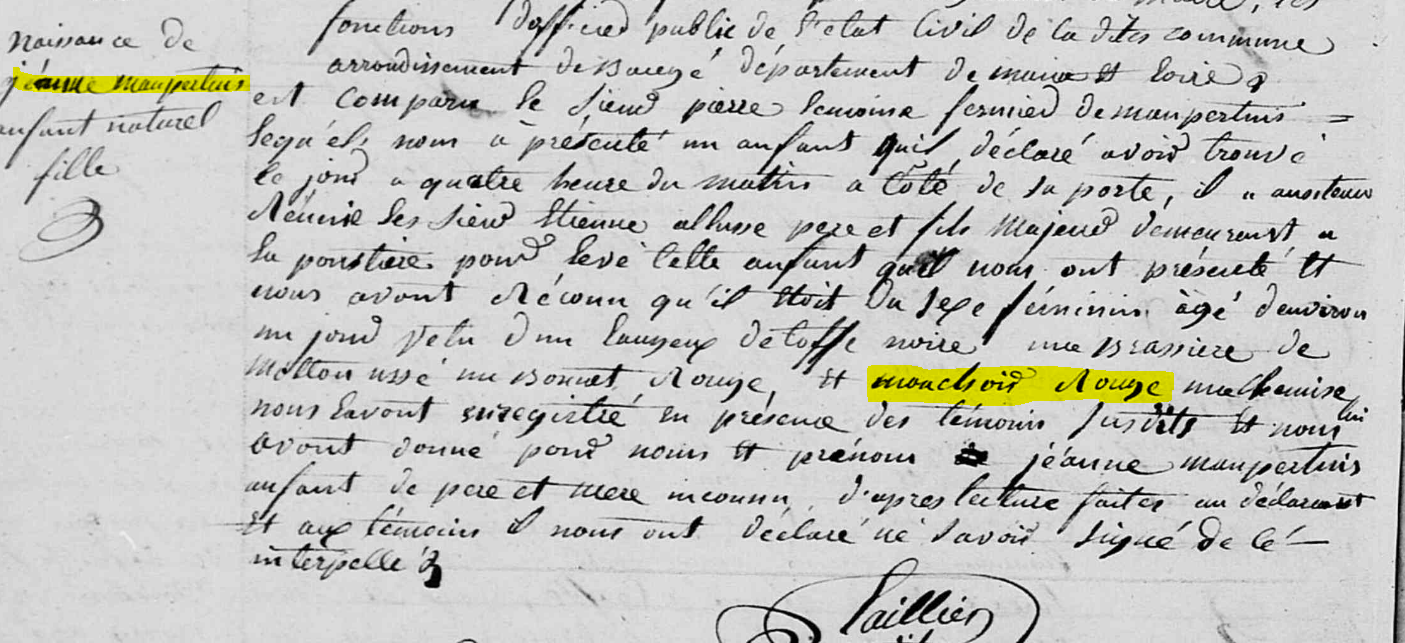 naissance de
jéanne maupertuis
enfant naturel
fille
fonctions d'officier public de l'etat Civil de la dites commune
arrondissement de Baugé département de maine et loire
est comparu le sieur pierre lemoine fermier de maupertuis =
lequel nous à présenté un enfant quil déclaré avoir trouvé
le jour a quatre heure du matin a côté de sa porte, il a
Réunie les sieur Etienne allusse pere et fils majeur demeurant a
la pour levé cette enfant quil nous ont présenté et
nous avont Réconu qu'il étoit du sexe féminin âgé d'environ
un jour vetu d'un langeux detoffe noire une Brassiere de
molton ussé un Bonnet Rouge, et mouchoir Rouge une chemise
nous lavont enregistré en présence des témoins susdits et nous lui
avont donné pour noms et prénom de jéanne maupertuis
anfant de pere et mere inconnu, d'apres lecture faites au déclarant
et aux témoins il nous ont déclaré né savoir signé de cé
interpellé
Taillier